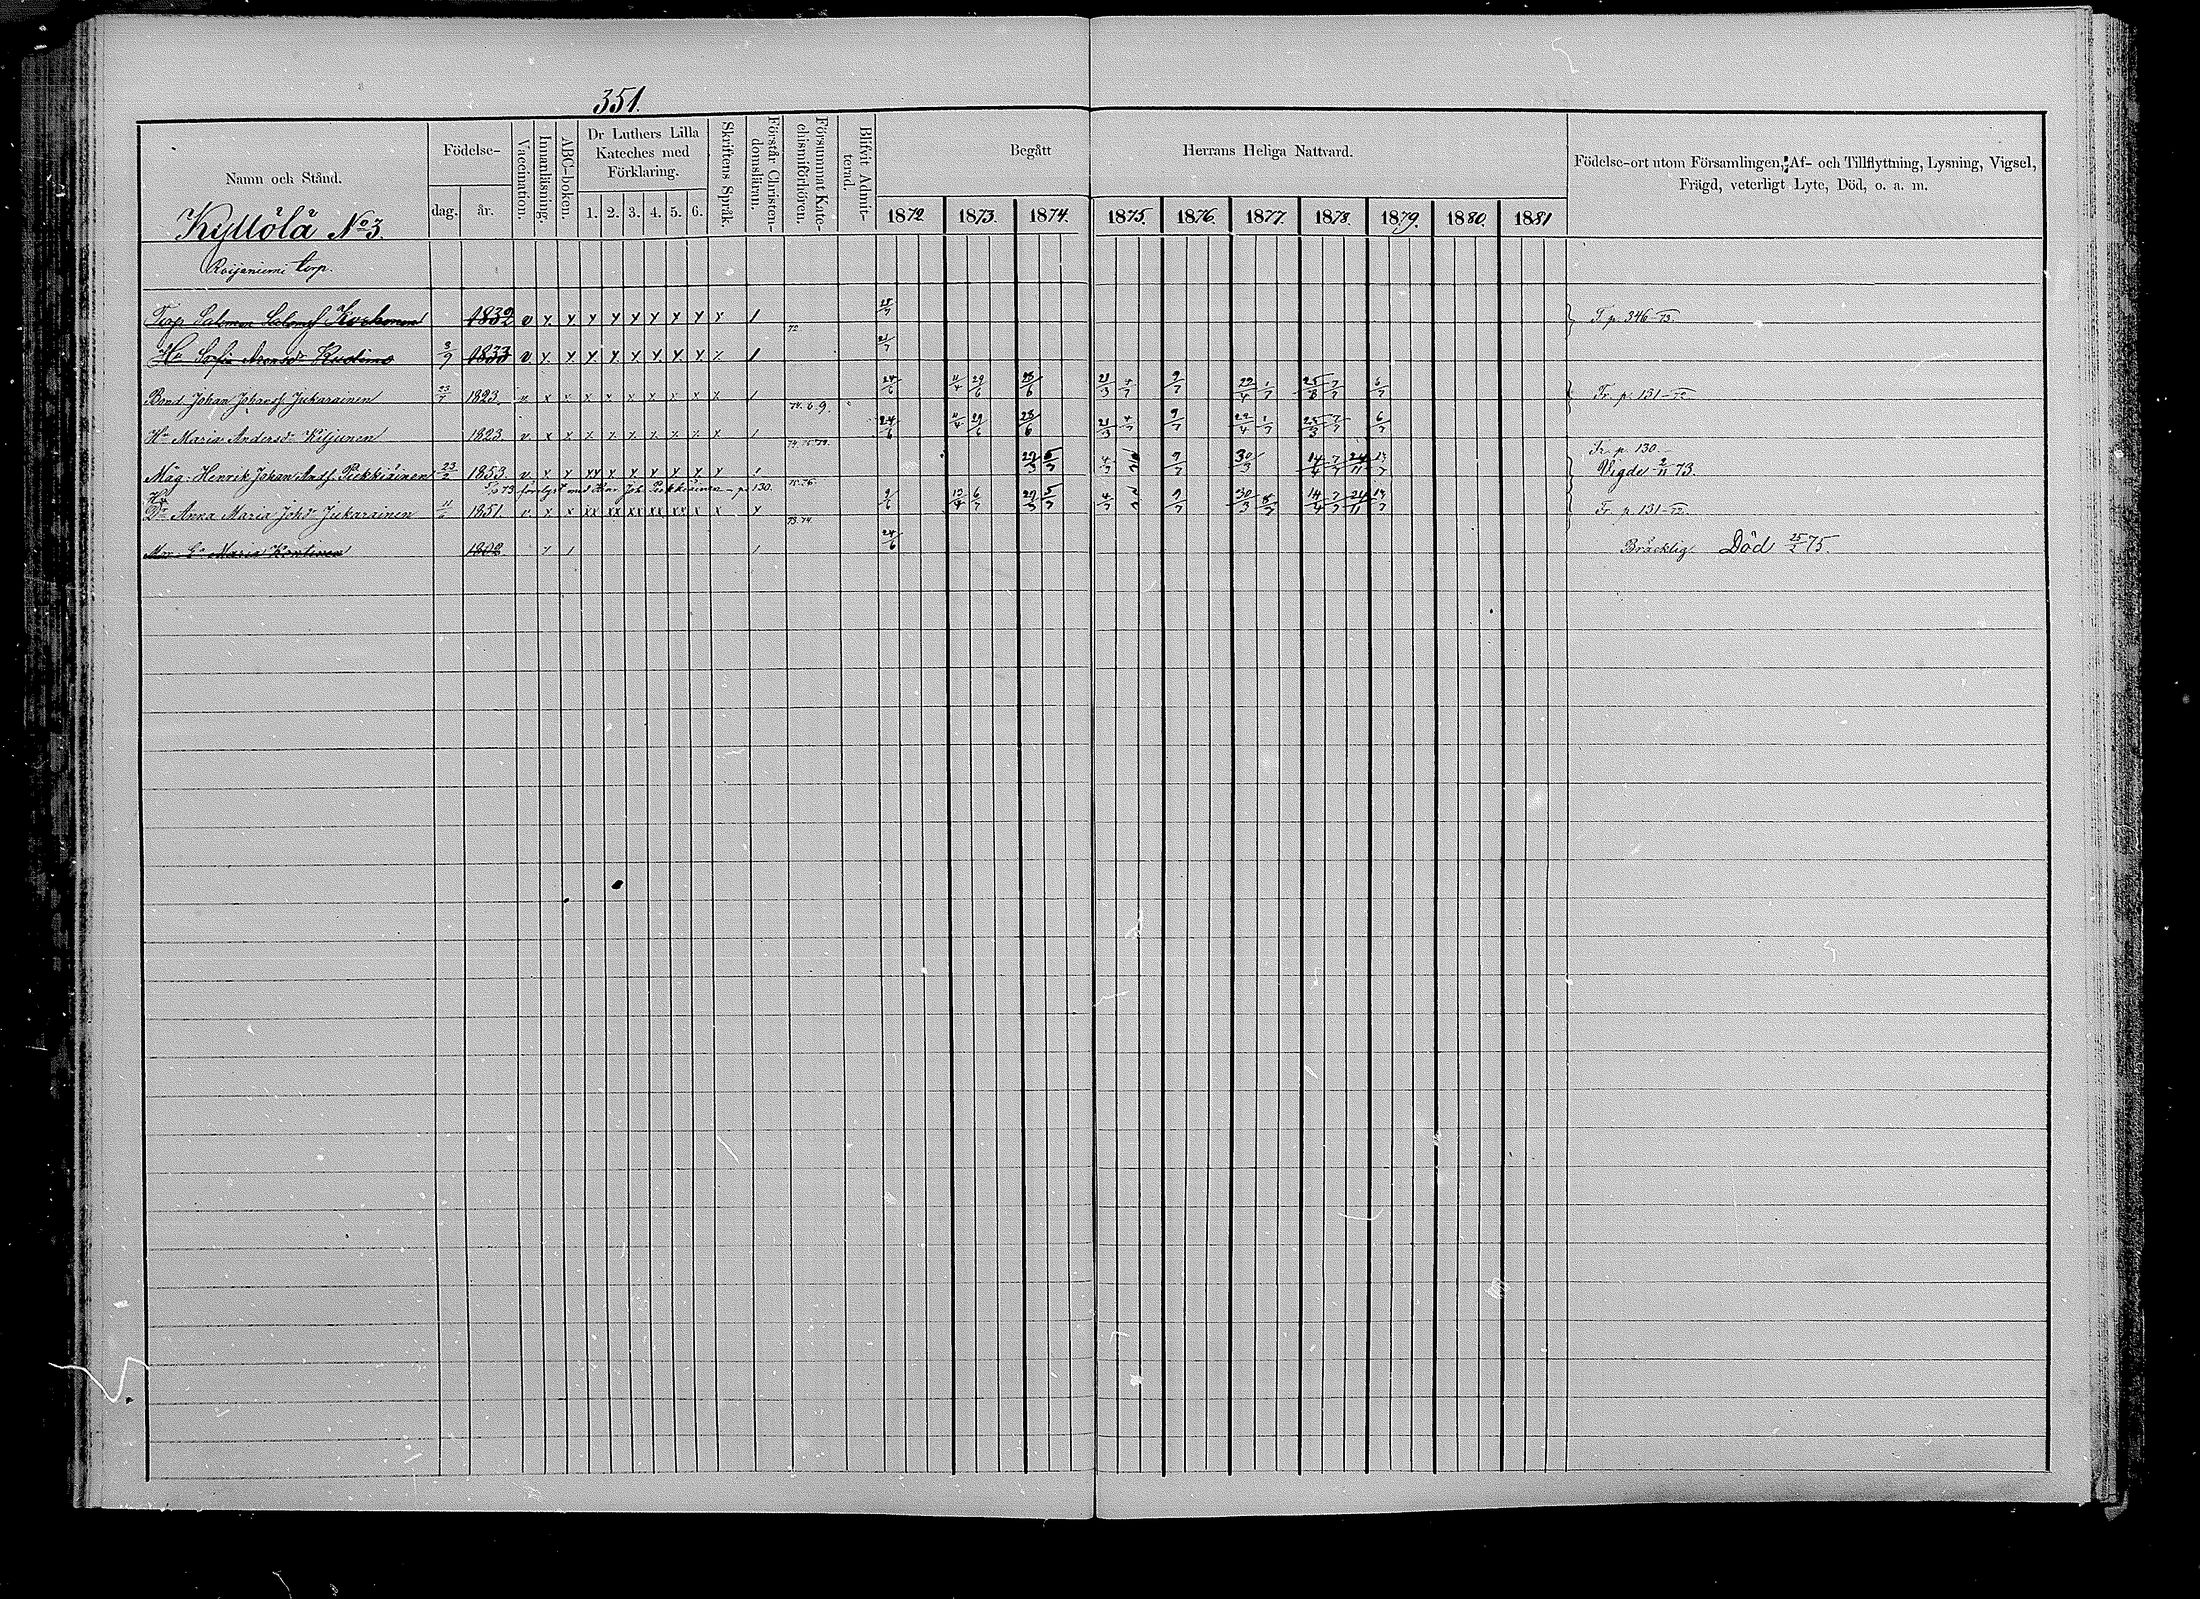 351.
Namn och Stånd.
Födelse-
dag.
år.
Vaccination.
Innanläsning.
ABC-boken.
Dr Luthers Lilla
Kateches med
Förklaring.
1. 2. 3. 4. 5. 6.
Skriftens Språk.
Förstår Christen-
domsläran.
Försummat Kate-
chismiförhören.
Blifvit Admit-
terad.
Begått Herrans Heliga Nattvard.
1872. 1873. 1874. 1875. 1876. 1877. 1878. 1879. 1880. 1881
Födelse-ort utom Församlingen, Af- och Tillflyttning, Lysning, Vigsel,
Frägd, veterligt Lyte, Död, o. a. m.
Kyllölä No 3.
Roijeniemi torp.
Torp. Salomon Salomsf Korhonen 1832 v x x x x x x x x x / 25/7 T. p. 346-73.
72
Hu Sofia Aronsdr 3/9 1833 v x x x x x x x x x / 21/7
Bond. Johan Johansf Jukarainen 23/7 1823. v x x x x x x x x x / 24/6 11/4 29/6 28/6 21/3 4/7 9/7 22/4 1/7 25/3 7/7 6/7 Fr. p. 131-72
74. 6. 9.
Hu Maria Andersdr Kiljunen 1823. v x x x x x x x x x / 24/6 11/4 29/6 28/6 21/3 4/7 9/7 22/4 1/7 25/3 7/7 6/7
74. 75. 79.
Fr. p. 130
Måg. Henrik Johan Andf. Pekkiäinen 23/2 1853. v x x xx x x x x x x / 29/3 5/7 4/7 9/7 30/3 14/4 7/7 24/11 13/7 Vigde 2/11 73.
73 förlyst med Hen. Joh. Pekkiäinen - p. 130.
75. 76.
Hu
Dr Anna Maria Johdr Jukarainen 11/6 1851. v x x xx xx xx xx xx x x x 9/6 13/4 6/7 29/3 5/7 4/7 9/7 30/3 8/7 14/4 7/7 24/11 13/7 Fr. p. 131-72.
73. 74.
Maria Kontinen 1802 / / / 24/6 Bräcklig. Död 25/2 75.